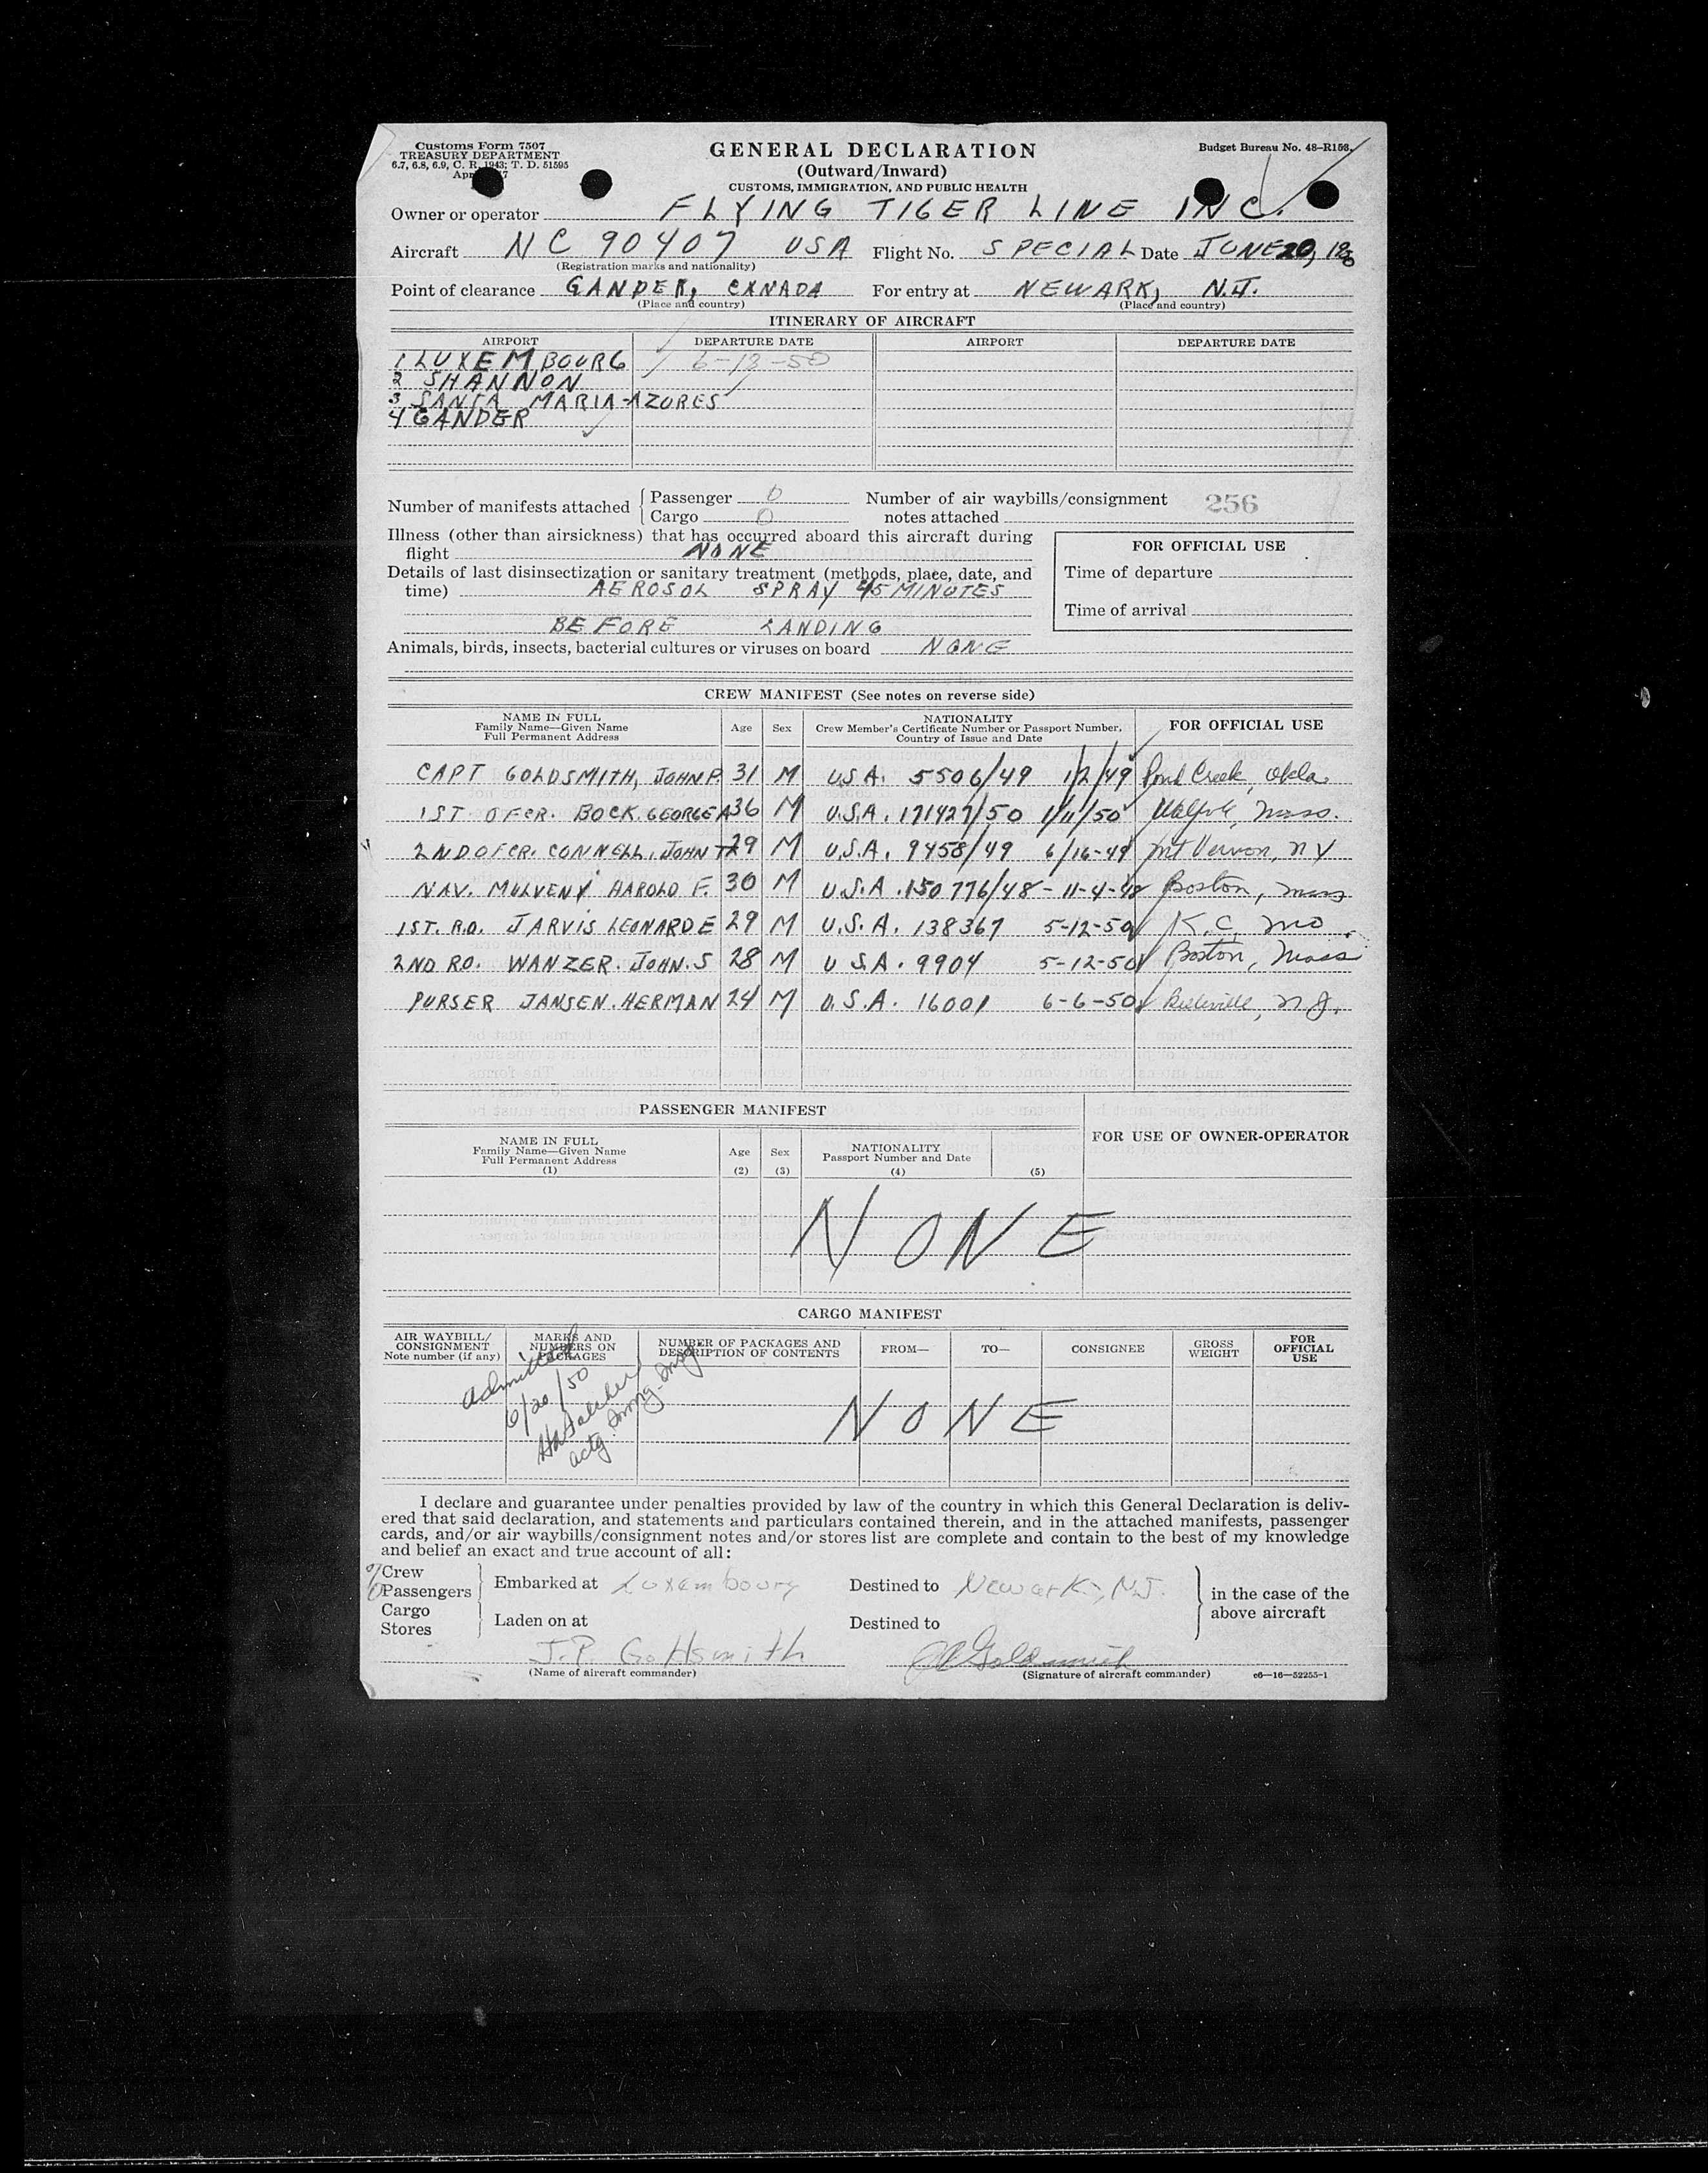 Customs Form 7507
TREASURY DEPARTMENT
6.7, 6.8, 6.9, C. R. 1943; T. D. 51595
GENERAL DECLARATION
(Outward/Inward)
CUSTOMS, IMMIGRATION, AND PUBLIC HEALTH
Budget Bureau No. 48-R153.
Owner or operator FLYING TIGER LINE INC.
Aircraft NC 90407 USA Flight No. SPECIAL Date JUNE 20,
(Registration marks and nationality)
Point of clearance GANDER, CANADA For entry at NEWARK, N.J.
(Place and country) (Place and country)
ITINERARY OF AIRCRAFT
AIRPORT DEPARTURE DATE AIRPORT DEPARTURE DATE
1 LUXEMBOURG 6-13-50
2 SHANNON
3 SANTA MARIA-AZORES
4 GANDER
Number of manifests attached Passenger 0 Cargo 0
Number of air waybills/consignment notes attached 256
Illness (other than airsickness) that has occurred aboard this aircraft during
flight NONE
FOR OFFICIAL USE
Time of departure
Time of arrival
Details of last disinsectization or sanitary treatment (methods, place, date, and
time) AEROSOL SPRAY 45 MINUTES
BEFORE LANDING
Animals, birds, insects, bacterial cultures or viruses on board NONE
CREW MANIFEST (See notes on reverse side)
NAME IN FULL
Family Name—Given Name
Full Permanent Address
Age Sex
NATIONALITY
Crew Member's Certificate Number or Passport Number,
Country of Issue and Date
FOR OFFICIAL USE
CAPT GOLDSMITH, JOHN P. 31 M U.S.A. 5506/49 1/2/49 Pond Creek, Okla.
1ST OFCR. BOCK GEORGE A 36 M U.S.A. 171427/50 1/11/50 Walpole, Mass.
2ND OFCR. CONNELL, JOHN 29 M U.S.A. 9458/49 6/16-49 Mt Vernon, NY
NAV. MULVENY HAROLD F. 30 M U.S.A. 150776/48 - 11-4-48 Boston, Mass
1ST. R.O. JARVIS LEONARD E 29 M U.S.A. 138367 5-12-50 K.C. Mo.
2ND RO. WANZER. JOHN. S 28 M U SA. 9904 5-12-50 Boston, Mass
PURSER JANSEN. HERMAN 24 M U.S.A. 16001 6-6-50 Belleville, N.J.
PASSENGER MANIFEST
FOR USE OF OWNER-OPERATOR
NAME IN FULL
Family Name—Given Name
Full Permanent Address
(1)
Age
(2)
Sex
(3)
NATIONALITY
Passport Number and Date
(4) (5)
NONE
CARGO MANIFEST
AIR WAYBILL/
CONSIGNMENT
Note number (if any)
MARKS AND
NUMBERS ON
PACKAGES
NUMBER OF PACKAGES AND
DESCRIPTION OF CONTENTS
FROM— TO— CONSIGNEE
GROSS
WEIGHT
FOR
OFFICIAL
USE
Admitted
6/20/50
Actg. Immg. Insp
NONE
I declare and guarantee under penalties provided by law of the country in which this General Declaration is deliv-
ered that said declaration, and statements and particulars contained therein, and in the attached manifests, passenger
cards, and/or air waybills/consignment notes and/or stores list are complete and contain to the best of my knowledge
and belief an exact and true account of all:
7 Crew
0 Passengers
Cargo
Stores
Embarked at Luxembourg Destined to Newark, N.J.
Laden on at Destined to
in the case of the
above aircraft
J.P. Goldsmith JP Goldsmith
(Name of aircraft commander) (Signature of aircraft commander) c6—16—52255-1